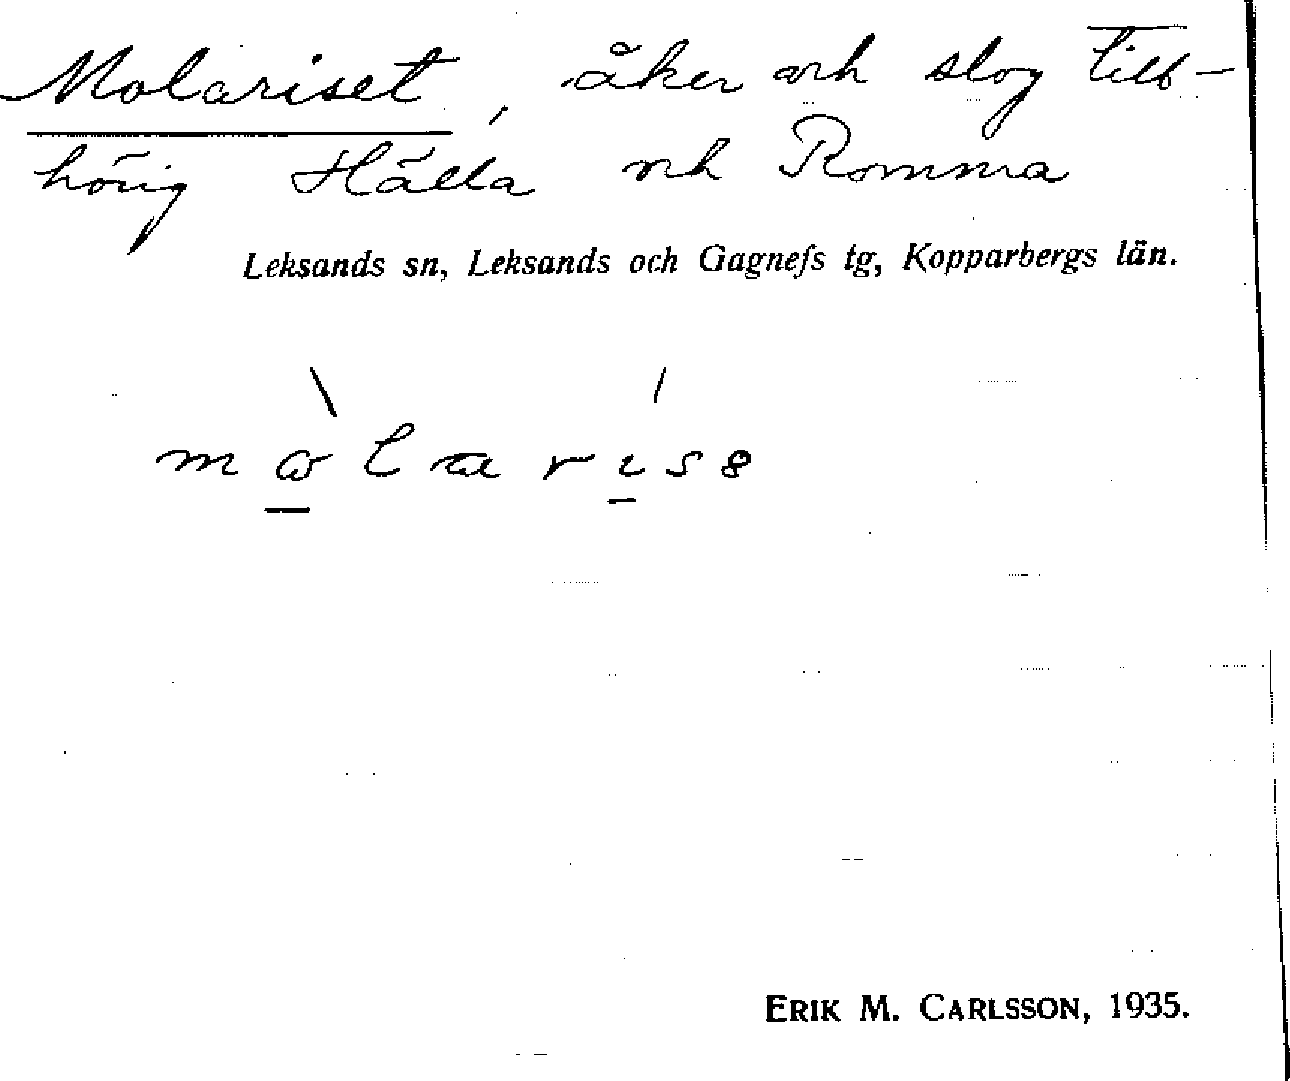 Molariset, åker och slog till-
hörig Hälla och Romma
Leksands sn, Leksands och Gagnefs tg, Kopparbergs län.
ERIK M. CARLSSON, 1935.